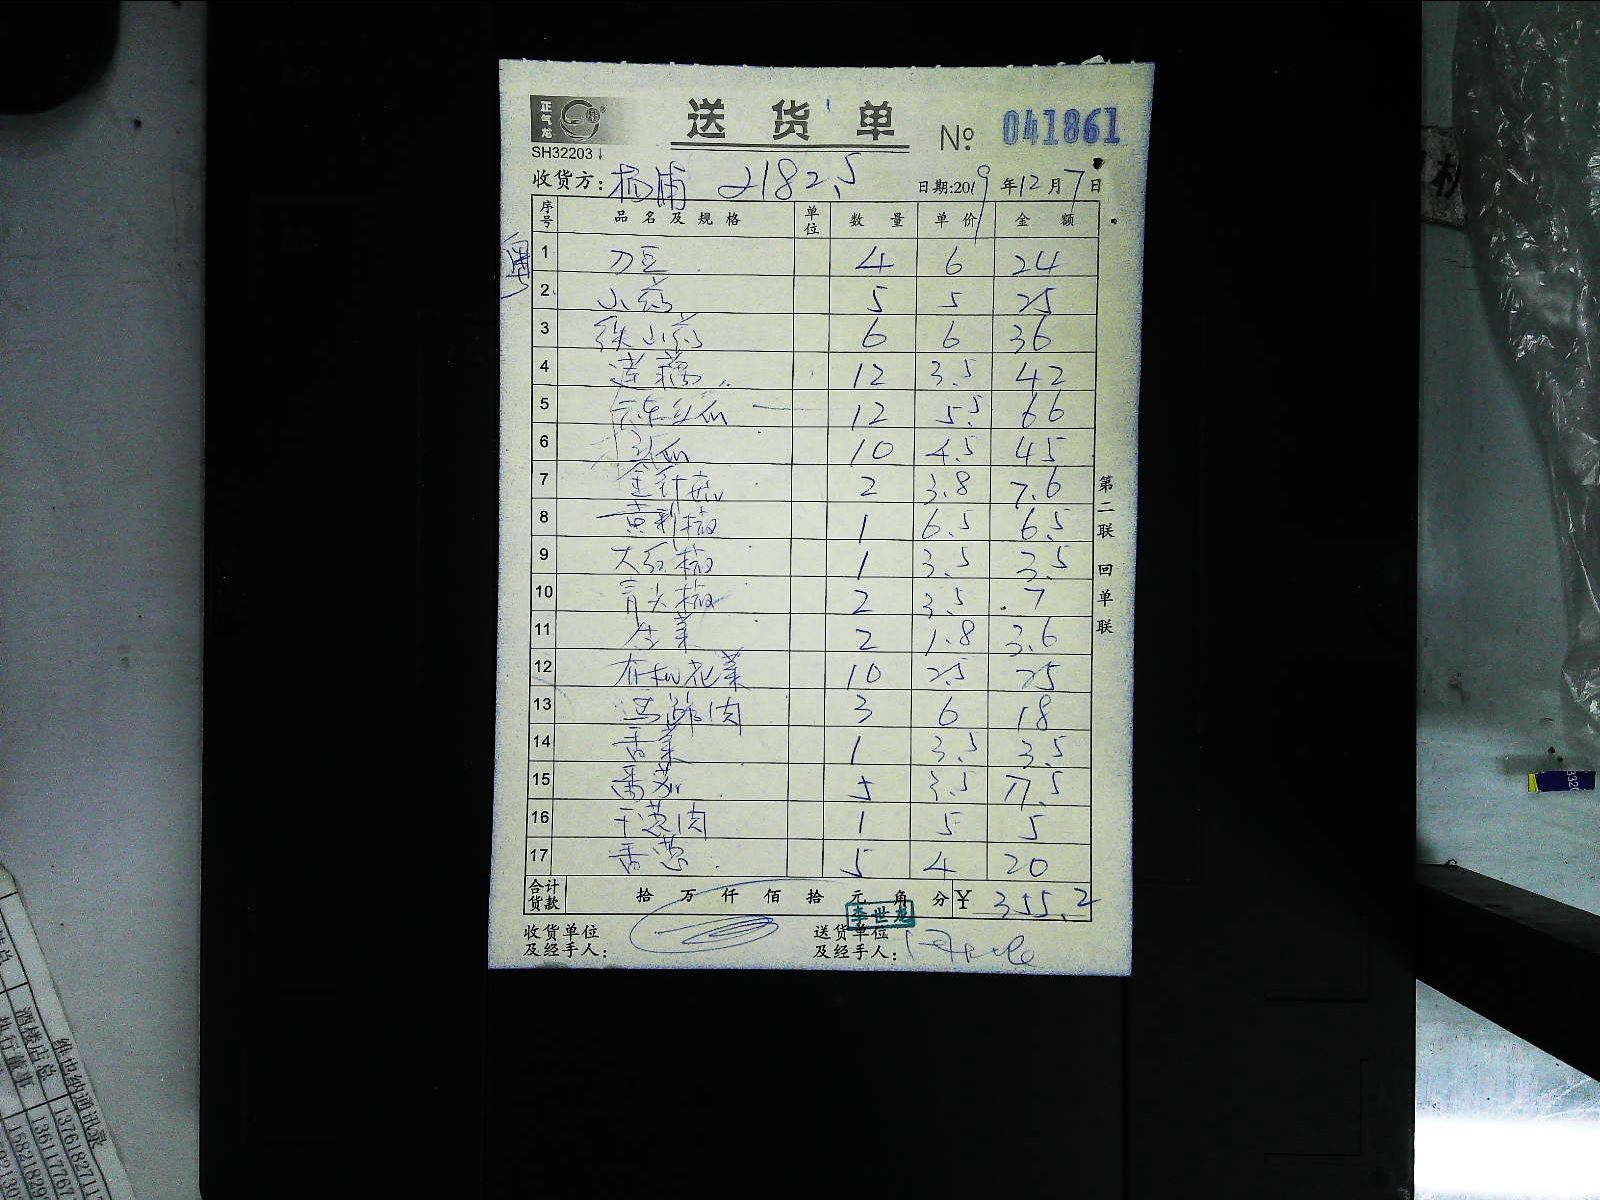 正气龙
送货单 № 041861
SH32203
收货方: 杨浦 2182.5 日期:2019年12月7日
序号 品名及规格 单位 数量 单价 金额
1 刀豆 4 6 24
2 山药 5 5 25
3 铁山药 6 6 36
4 莲藕 12 3.5 42
5 去皮丝瓜 12 5.5 66
6 瓜 10 4.5 45
7 金针菇 2 3.8 7.6
8 黄彩椒 1 6.5 6.5
9 大红椒 1 3.5 3.5
10 青大椒 2 3.5 7
11 生菜 2 1.8 3.6
12 有机花菜 10 2.5 25
13 肉 3 6 18
14 香菜 1 3.5 3.5
15 番茄 5 3.5 17.5
16 干葱肉 1 5 5
17 香葱 5 4 20
合计货款 拾 万 仟 佰 拾 元 角 分 ¥ 355.2
李世龙
收货单位及经手人: 送货单位及经手人:
第二联 回单联
维也纳通讯录
酒楼店总 1376182711
执行董事 136117767
15821829